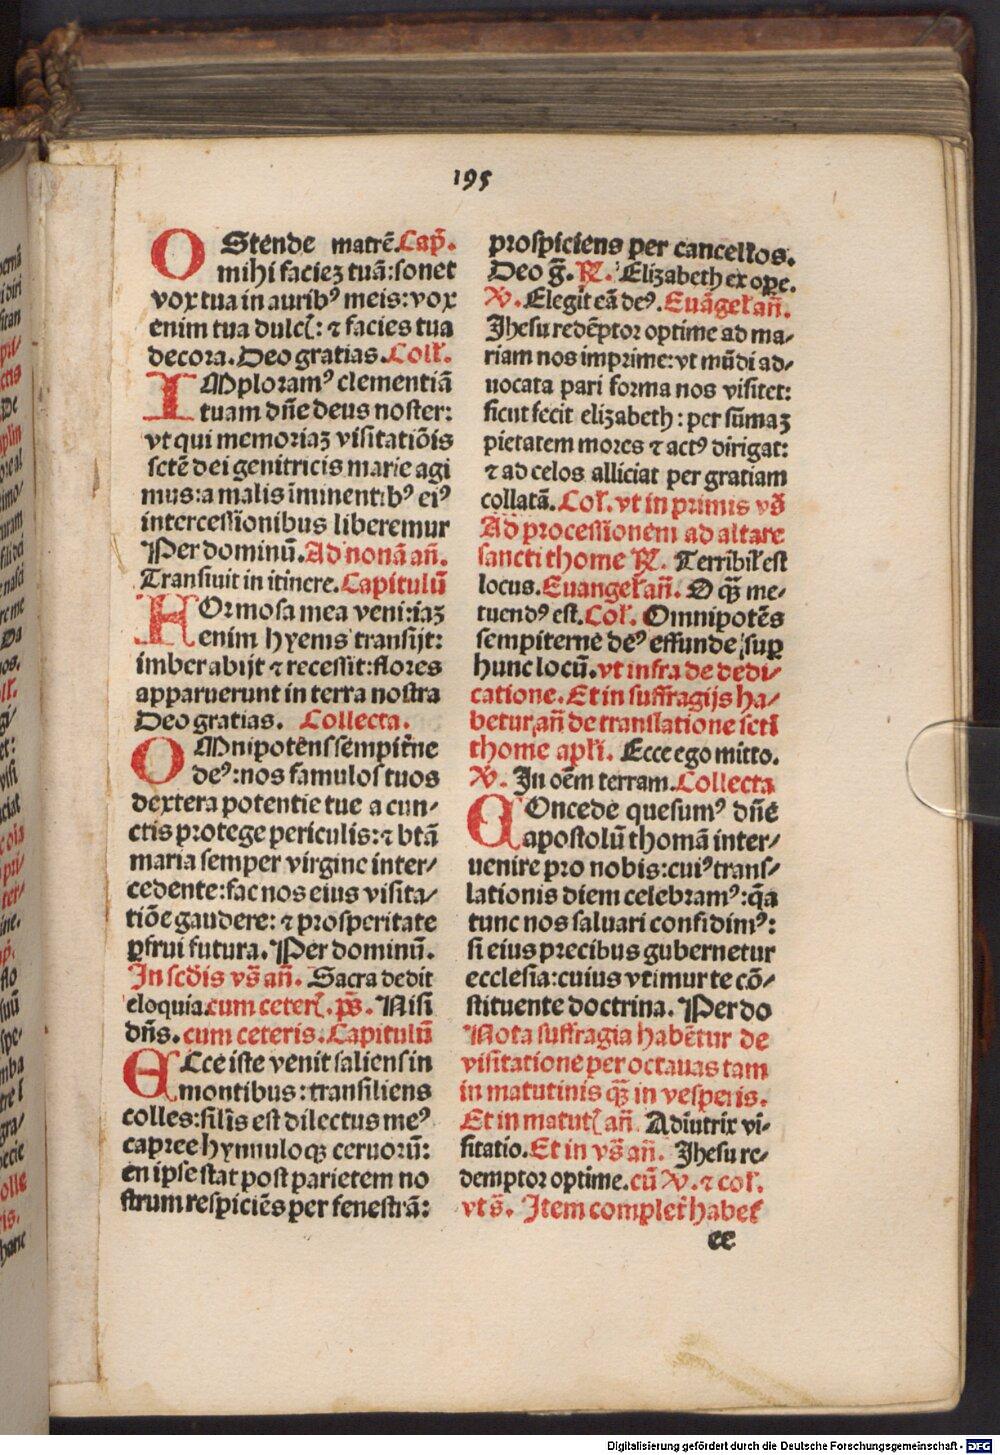 195
OStende matrē. Cap̄.
mihi facieꝫ tuā: sonet
vox tua in auribꝰ meis: vox
enim tua dulcꝭ: ⁊ facies tua
decora. Deo gratias. Colł.
IMploramꝰ clementiā
tuam dn̄e deus noster:
vt qui memoriaꝫ visitatiōis
sctē dei genitricis marie agi
mus: a malis īminentibꝰ eiꝰ
intercessionibus liberemur
Per dominū. Ad nonā an̄.
Transiuit in itinere. Capitulū
FOrmosa mea veni: iaꝫ
enim hyems transijt:
imber abijt ⁊ recessit: flores
apparuerunt in terra nostra
Deo gratias. Collecta.
OMnipotēns sempit̄ne
deꝰ: nos famulos tuos
dextera potentie tue a cun-
ctis protege periculis: ⁊ btā
maria semper virgine inter-
cedente: fac nos eius visita-
tiōe gaudere: ⁊ prosperitate
ꝑfrui futura. Per dominū.
In scd̄is vs̄ an̄. Sacra dedit
eloquia. cum ceterꝭ. ps̄. Nisi
dn̄s. cum ceteris. Capitulū
ECce iste venit saliens in
montibus: transiliens
colles: silīs est dilectus meꝰ
capree hynnuloqꝫ ceruorū:
en ipse stat post parietem no
strum respiciēs per fenestrā:
prospiciens per cancellos.
Deo ḡ. ℟. Elizabeth ex oꝑe.
℣. Elegit eā deꝰ. Euāgeł an̄.
Jhesu redēptor optime ad ma-
riam nos imprime: vt mūdi ad-
uocata pari forma nos visitet:
sicut fecit elizabeth: per sūmaꝫ
pietatem mores ⁊ actꝰ dirigat:
⁊ ad celos alliciat per gratiam
collatā. Coł. vt in primis vs̄
Ad processionem ad altare
sancti thome ℟. Terribił est
locus. Euangeł an̄. O qꝫ me-
tuendꝰ est. Coł. Omnipotēs
sempiterne deꝰ effunde suꝑ
hunc locū. vt infra de dedi-
catione. Et in suffragijs ha-
betur an̄ de translatione sctī
thome apłi. Ecce ego mitto.
℣. In oēm terram. Collecta
COncede quesumꝰ dn̄e
apostolū thomā inter-
uenire pro nobis: cuiꝰ trans-
lationis diem celebramꝰ: q̄a
tunc nos saluari confidimꝰ:
si eius precibus gubernetur
ecclesia: cuius vtimur te cō-
stituente doctrina. Per do
Nota suffragia habētur de
visitatione per octauas tam
in matutinis qꝫ in vesperis.
Et in matutꝭ an̄. Adiutrix vi-
sitatio. Et in vs̄ an̄. Jhesu re-
demptor optime. cū ℣. ⁊ coł.
vt s̄. Item complet̄ habeꝭ
ee
Digitalisierung gefördert durch die Deutsche Forschungsgemeinschaft - DFG